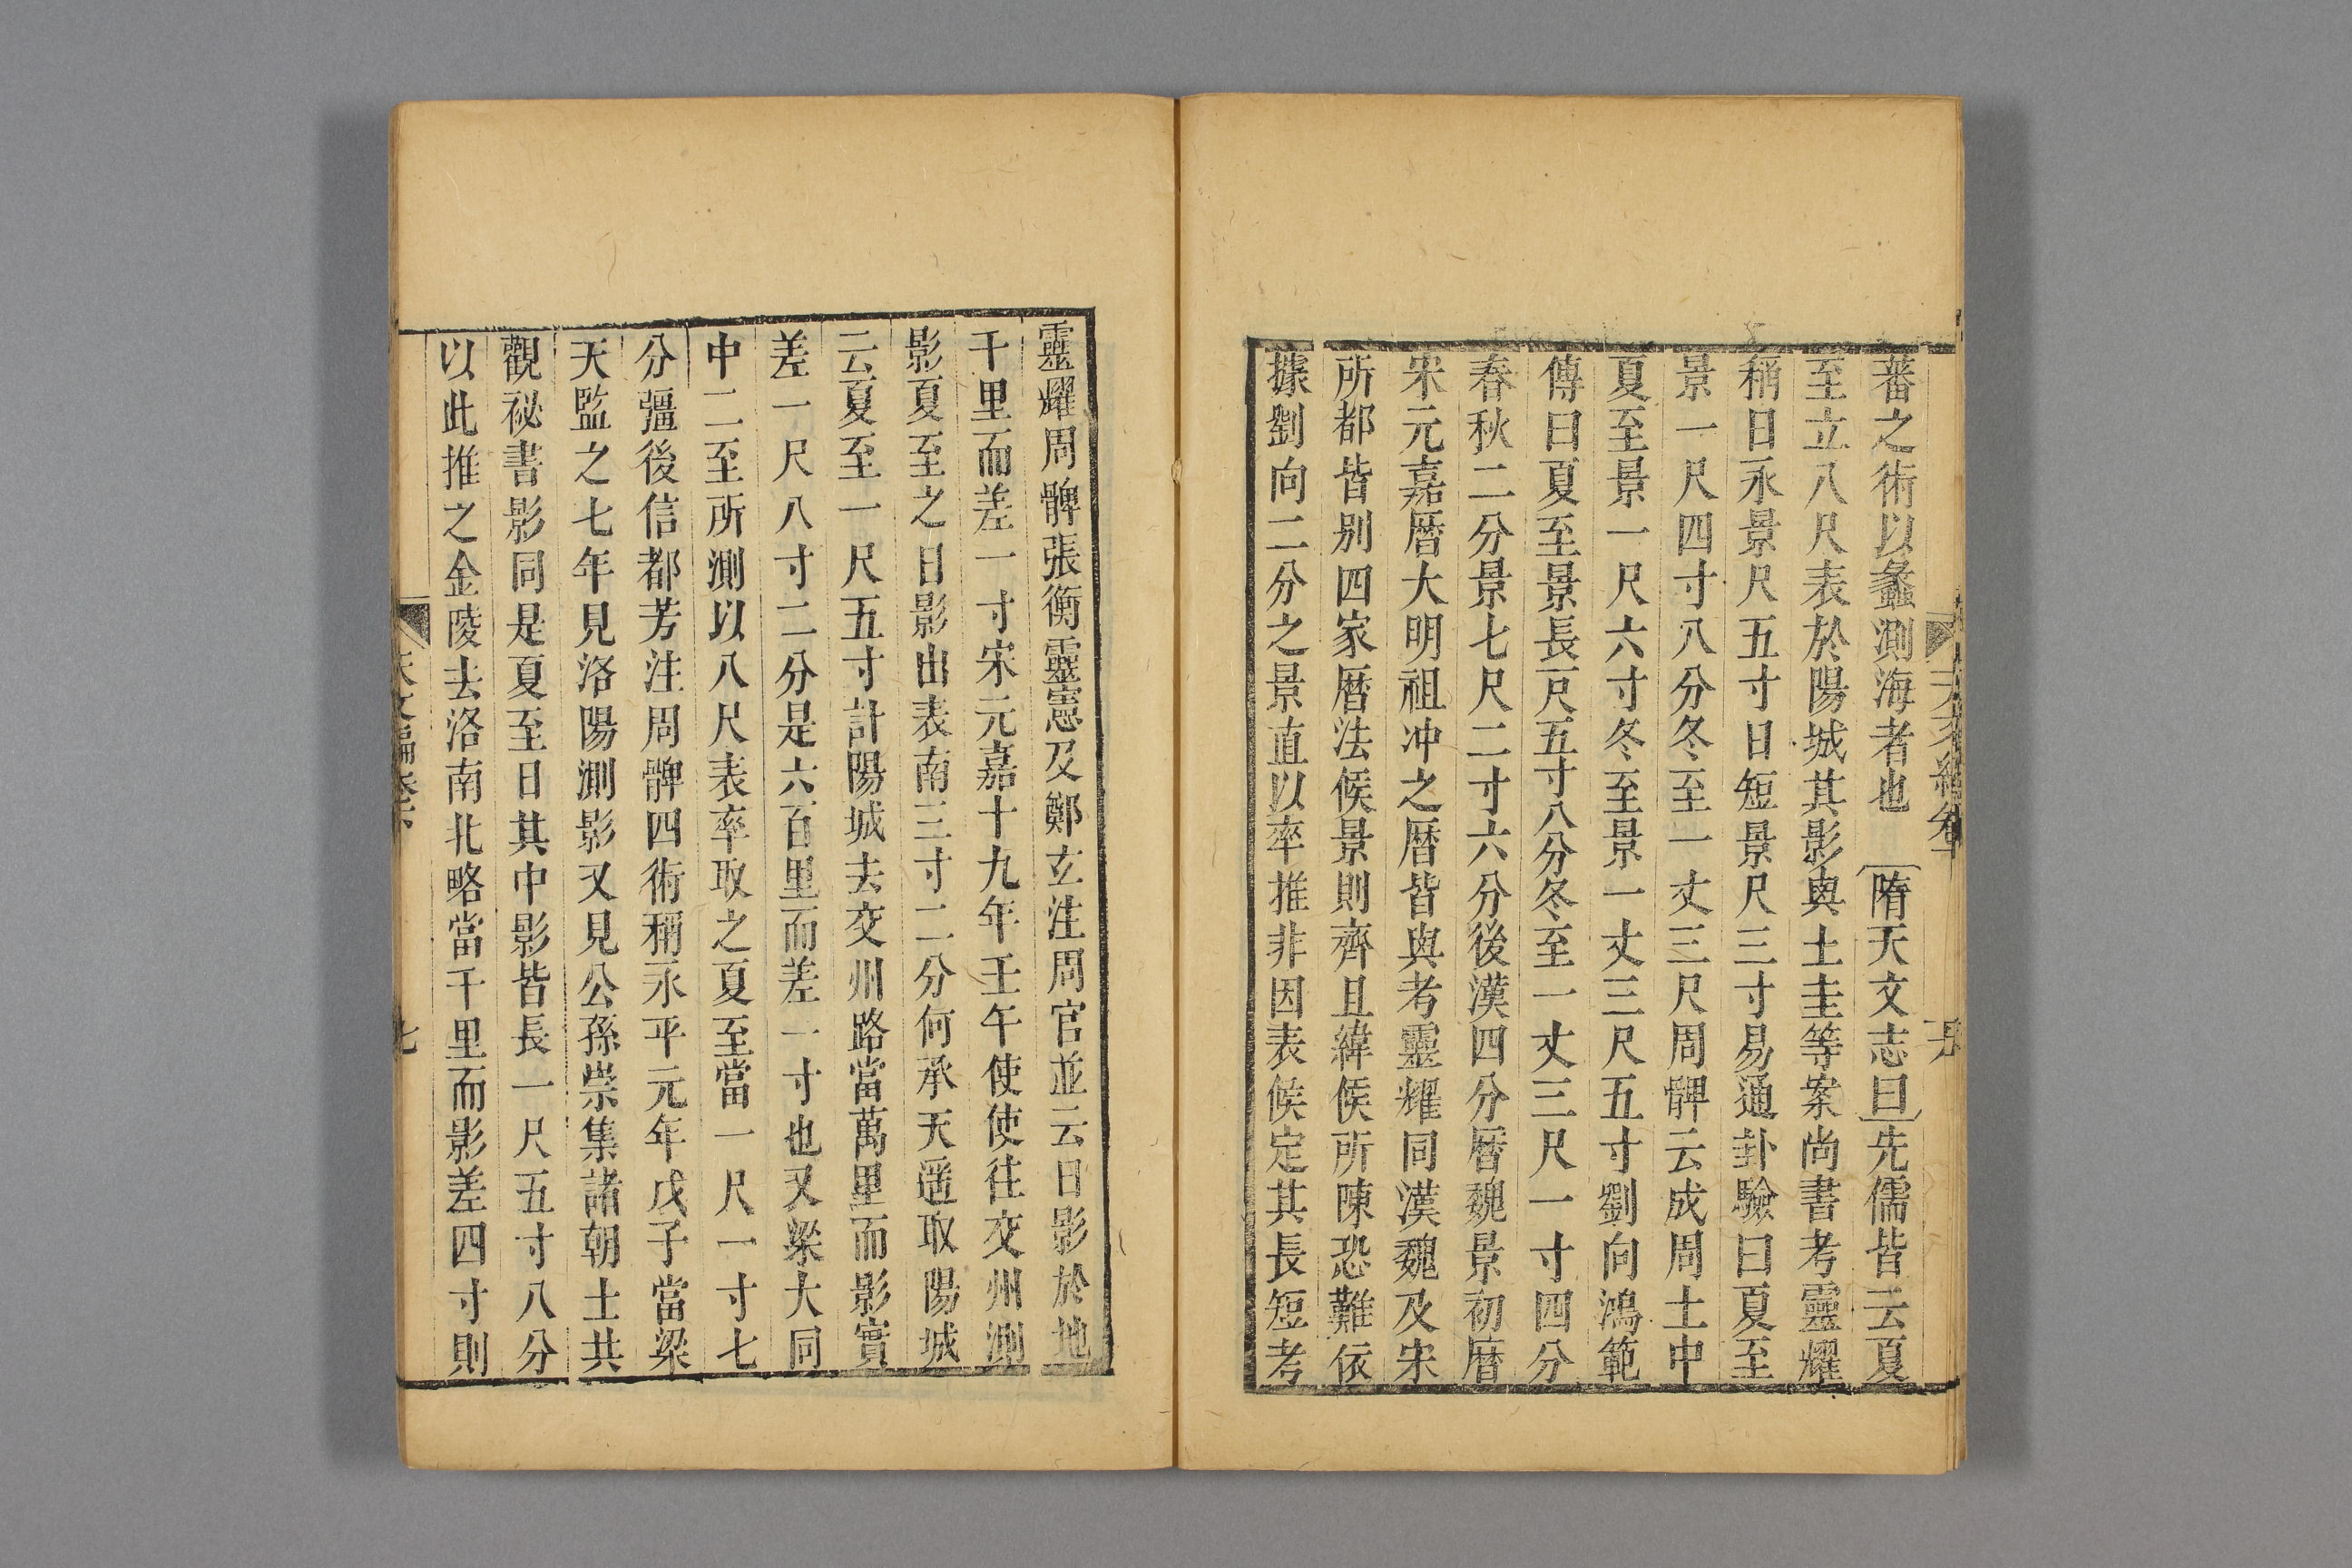 蕃之術以蠡測海者也　隋天文志曰先儒皆云夏
至立八尺表於陽城其影與土圭等案尚書考靈耀
稱日永景尺五寸日短景尺三寸易通卦驗曰夏至
景一尺四寸八分冬至一丈三尺周髀云成周土中
夏至景一尺六寸冬至景一丈三尺五寸劉向鴻範
傳曰夏至景長一尺五寸八分冬至一丈三尺一寸四分
春秋二分景七尺二寸六分後漢四分曆魏景初曆
宋元嘉曆大明祖冲之曆皆與考靈耀同漢魏及宋
所都皆别四家曆法候景則齊且緯候所陳恐難依
據劉向二分之景直以率推非因表候定其長短考
靈耀周髀張衡靈憲及鄭玄注周官並云日影於地
千里而差一寸宋元嘉十九年壬午使使往交州測
影夏至之日影出表南三寸二分何承天遥取陽城
云夏至一尺五寸計陽城去交州路當萬里而影實
差一尺八寸二分是六百里而差一寸也又梁大同
中二至所測以八尺表率取之夏至當一尺一寸七
分彊後信都芳注周髀四術稱永平元年戊子當梁
天監之七年見洛陽測影又見公孫崇集諸朝士共
觀祕書影同是夏至日其中影皆長一尺五寸八分
以此推之金陵去洛南北略當千里而影差四寸則
天文編卷
七